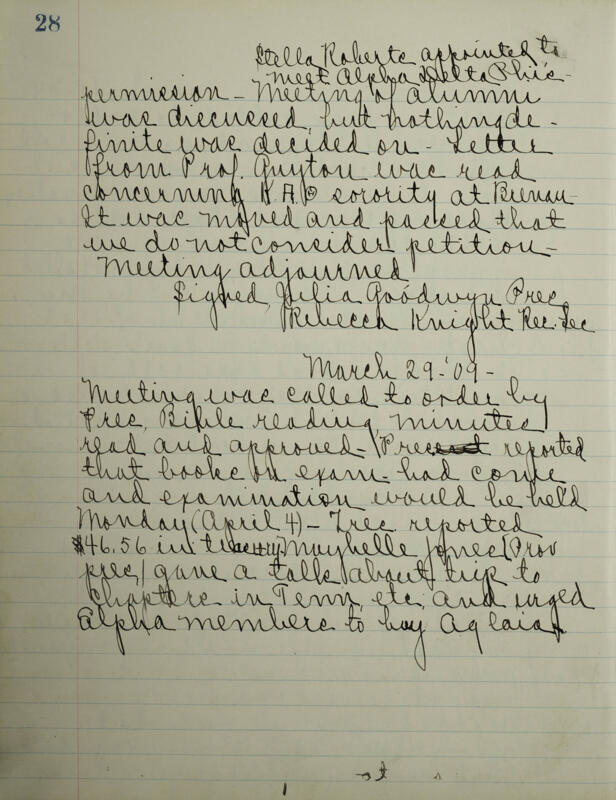 28
Stella Roberts appointed to
meet Alpha Delta Phis -
permission - Meeting of alumni
was discussed, but nothing de -
finite was decided on - Letter
from Prof. Guyton was read
concerning K A Φ sorority at Brenau -
It was moved and passed that
we do not consider petition -
Meeting adjourned
Signed, Julia Goodwyn Pres.
Rebecca Knight Rec. Sec
March 29 - '09 -
Meeting was called to order by
Pres, Bible reading, minutes
read and approved - Pres reported
that books on exam - had come
and examination would be held
Monday (April 4) - Tres reported
$46.56 in treasury Maybelle Jones [Prov
pres] gave a talk about trip to
chapters in Tenn, etc, and urged
Alpha members to buy Aglaia